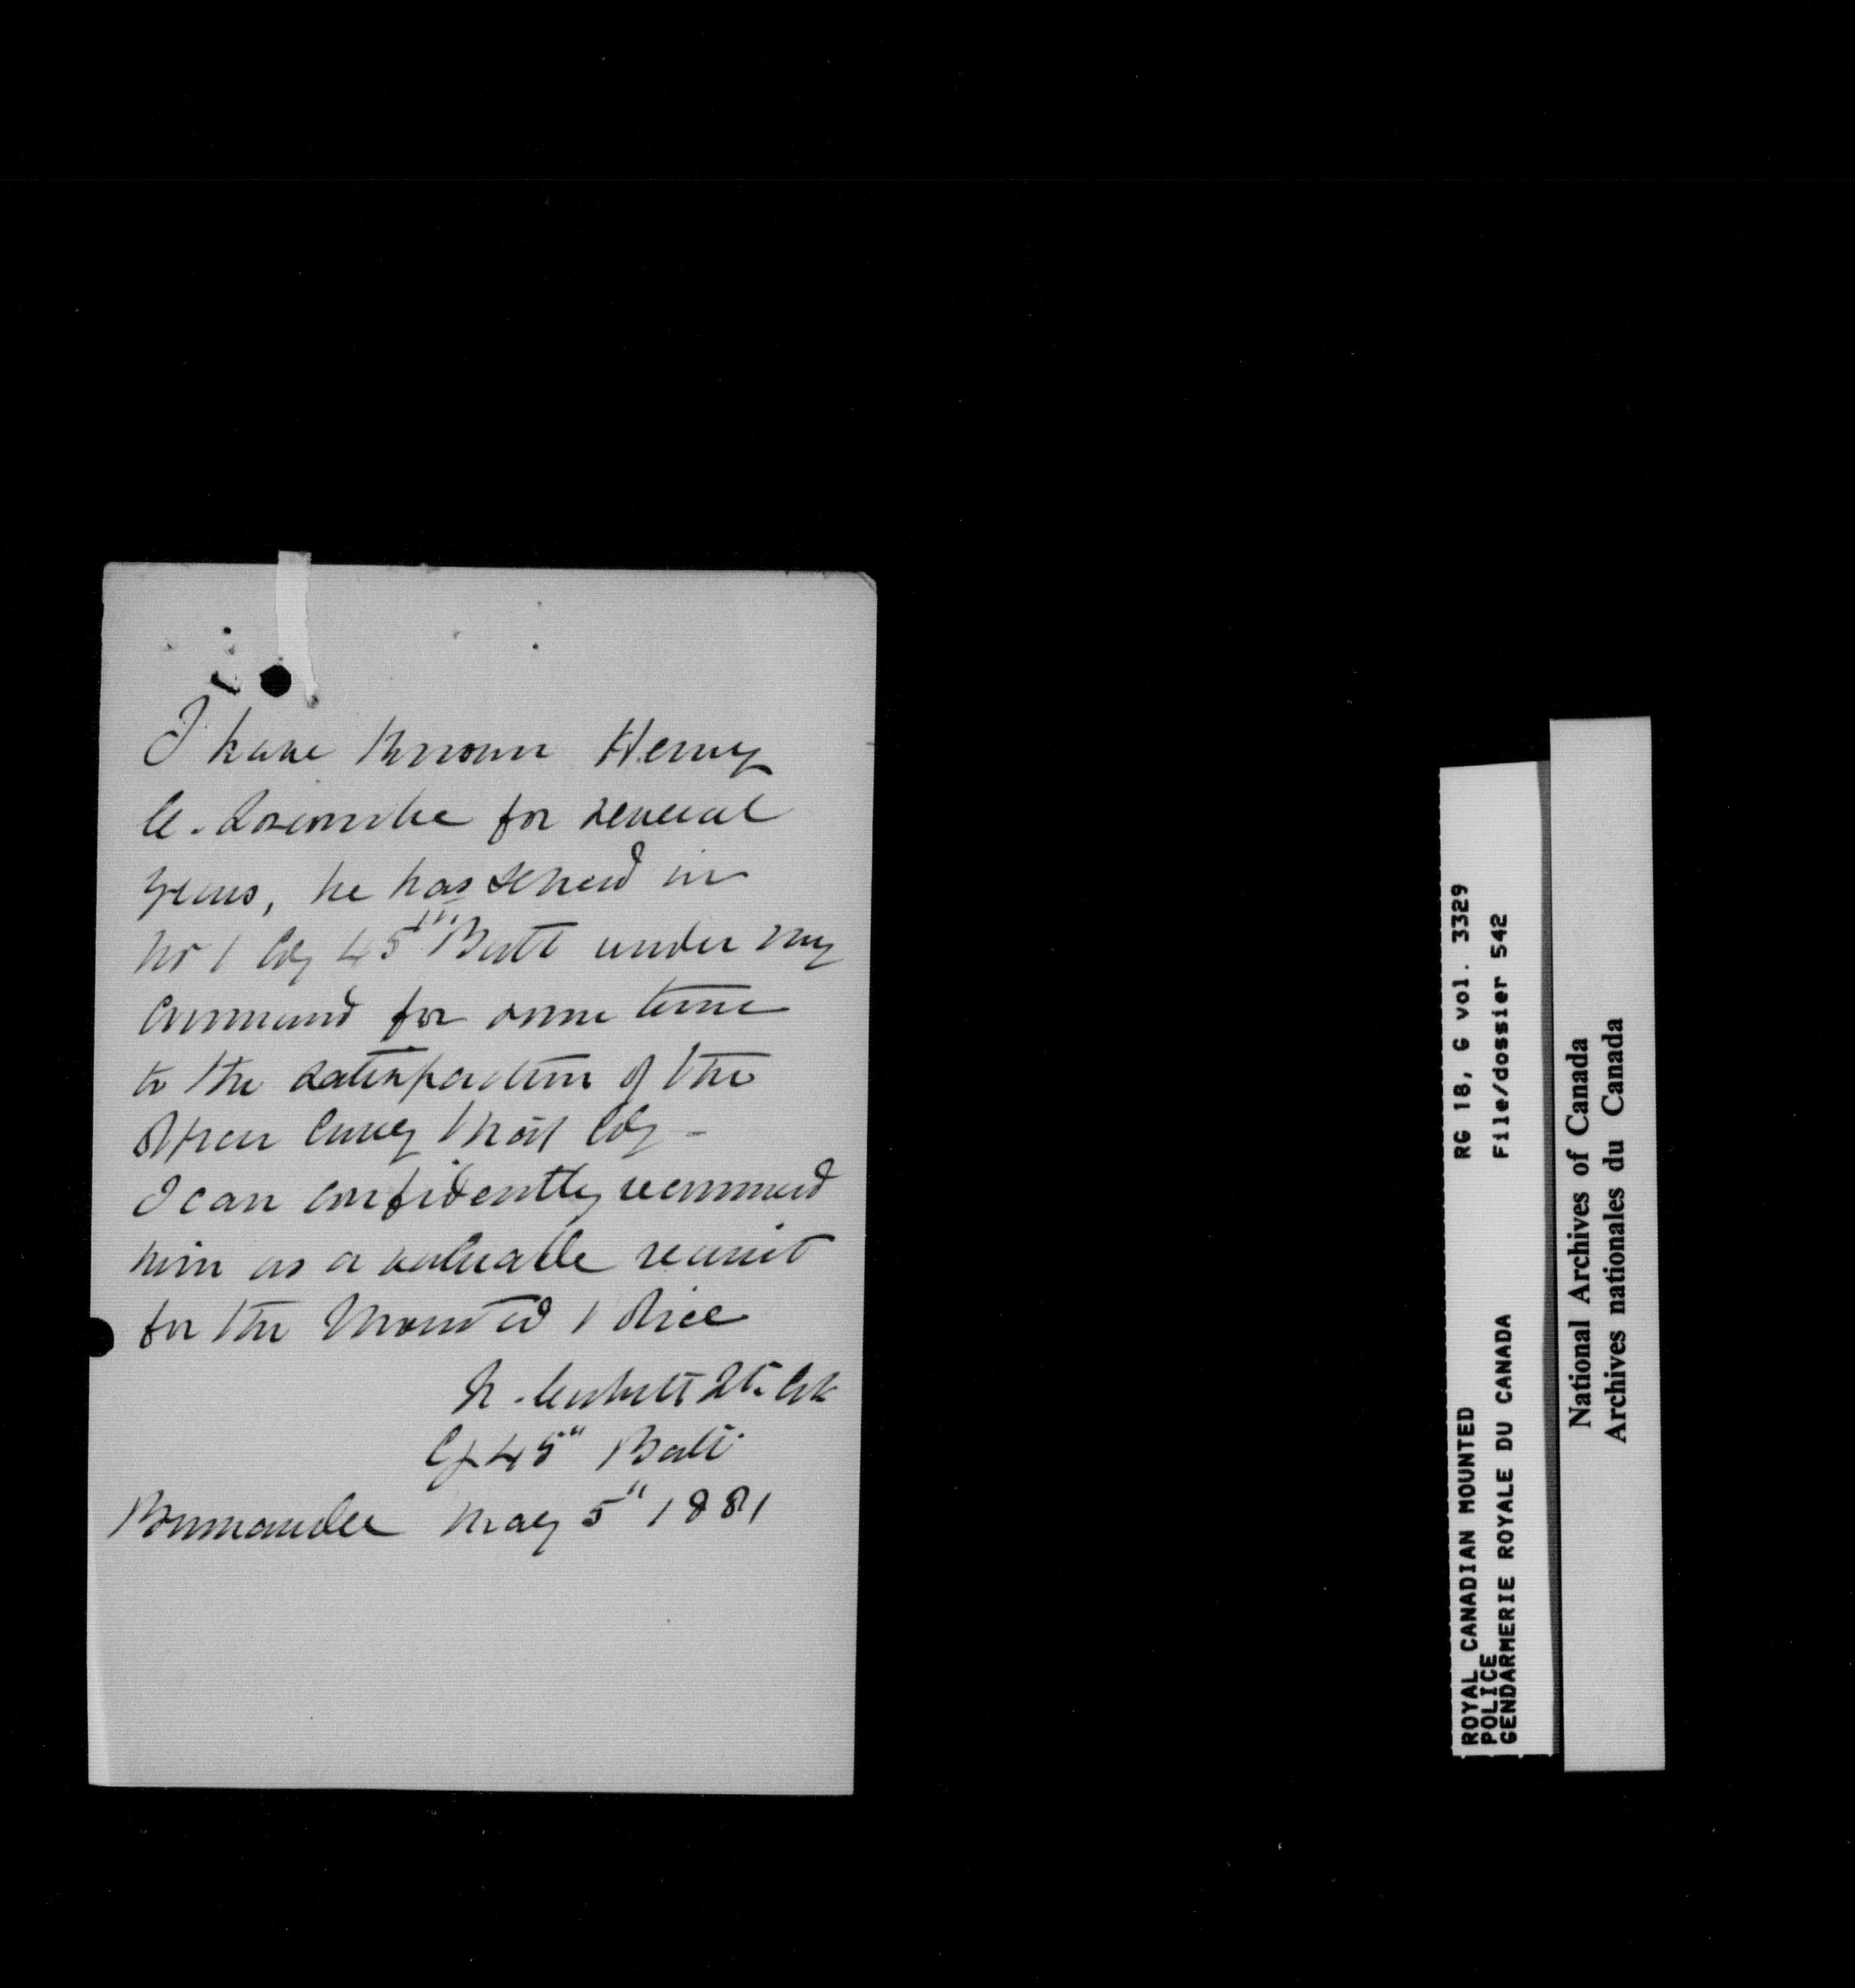 I have known Henry
C. Loscombe for several
years, he has served in
No 1 Coy 45th Batt under my
Command for some time
to the satisfaction of the
Officer Comg that Coy –
I can confidently recommend
him as a valuable recruit
for the Mounted Police
Lt. Col
45" Batt.
Bowmanville May 5" 1881
ROYAL CANADIAN MOUNTED RG 18, G vol. 3329
POLICE File/dossier 542
GENDARMERIE ROYALE DU CANADA
National Archives of Canada
Archives nationales du Canada